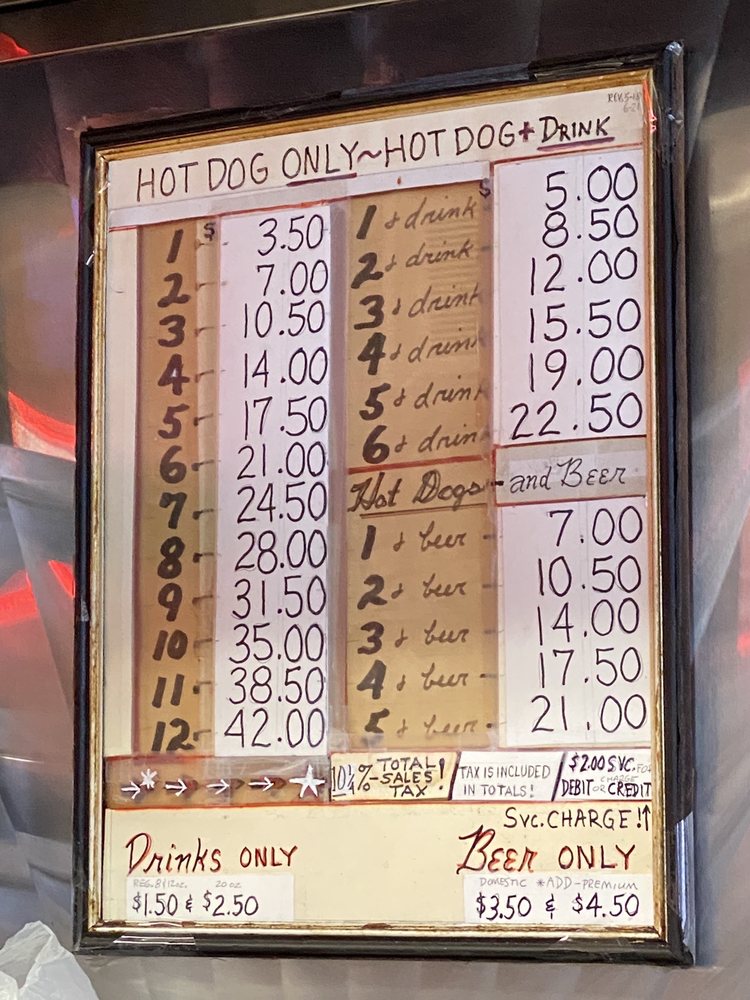 REV. 5-18
6-21
HOT DOG ONLY~HOT DOG + DRINK
1 $ 3.50
2 - 7.00
3 - 10.50
4 - 14.00
5 - 17.50
6 - 21.00
7 - 24.50
8 - 28.00
9 - 31.50
10 - 35.00
11 - 38.50
12 - 42.00
1 & drink $ 5.00
2 & drink 8.50
3 & drink 12.00
4 & drink 15.50
5 & drink 19.00
6 & drink 22.50
Hot Dogs - and BEER
1 & beer - 7.00
2 & beer - 10.50
3 & beer - 14.00
4 & beer - 17.50
5 & beer - 21.00
→* → → → ★
10 1/4 %- TOTAL SALES TAX!
TAX IS INCLUDED IN TOTALS!
$2.00 SVC. CHARGE FOR DEBIT OR CREDIT
SVC. CHARGE!↑
Drinks ONLY
REG. 8/12oz. 20 oz
$1.50 & $2.50
BEER ONLY
DOMESTIC *ADD-PREMIUM
$3.50 & $4.50